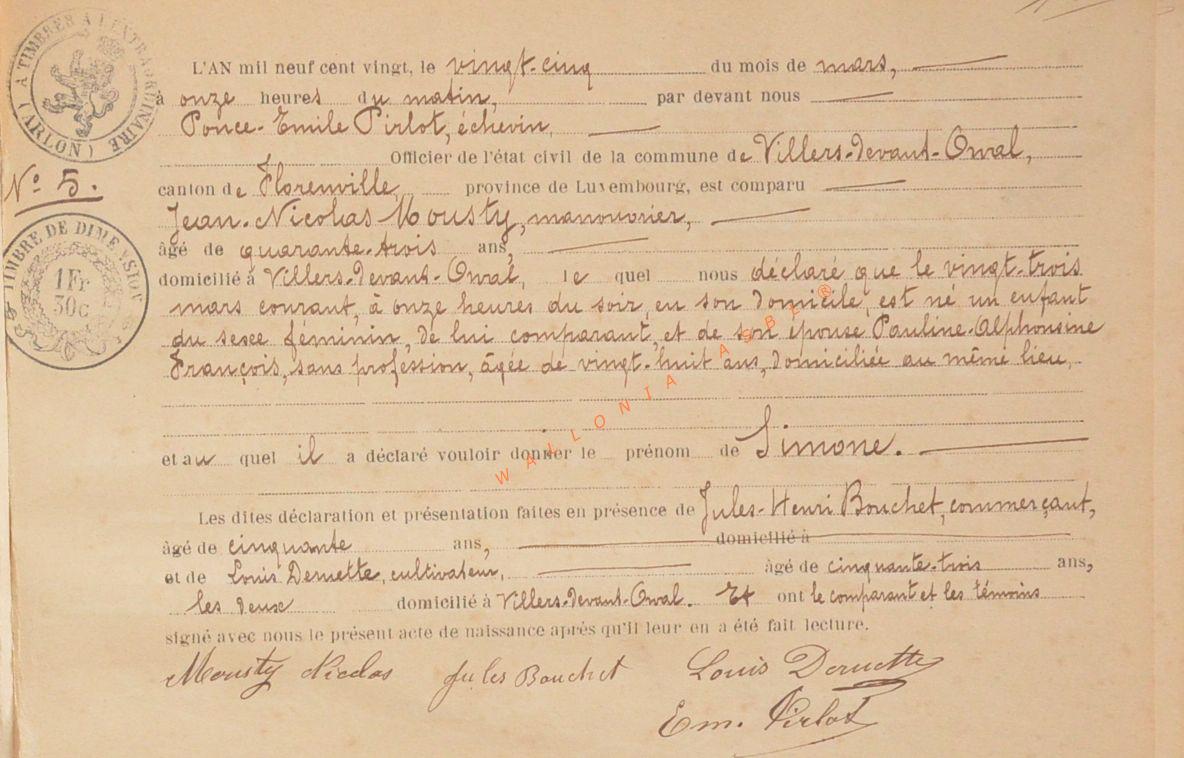 (A TIMBRER À L'EXTRAORDINAIRE (ARLON)
L'AN mil neuf cent vingt, le vingt-cinq du mois de mars,
à onze heures du matin, par devant nous
Ponce-Emile Pirlot, échevin,
Officier de l'état civil de la commune de Villers-devant-Orval,
N° 5.
canton de Florenville, province de Luxembourg, est comparu
Jean-Nicolas Mousty, manouvrier,
TIMBRE DE DIMENSION
1 Fr
30c
âgé de quarante-trois ans,
domicilié à Villers-devant-Orval, le quel nous déclaré que le vingt-trois
mars courant, à onze heures du soir, en son domicile, est né un enfant
du sexe féminin, de lui comparant, et de son épouse Pauline-Alphonsine
François, sans profession, âgée de vingt-huit ans, domiciliée au même lieu,
WALLONIA ASBL ®
et au quel il a déclaré vouloir donner le prénom de Simone.
Les dites déclaration et présentation faites en présence de Jules-Henri Bouchet, commerçant,
âgé de cinquante ans, domicilié à
et de Louis Demette, cultivateur, âgé de cinquante-trois ans,
les deux domicilié à Villers-devant-Orval. Et ont le comparant et les témoins
signé avec nous le présent acte de naissance après qu'il leur en a été fait lecture.
Mousty Nicolas Jules Bouchet Louis Demette
Em. Pirlot